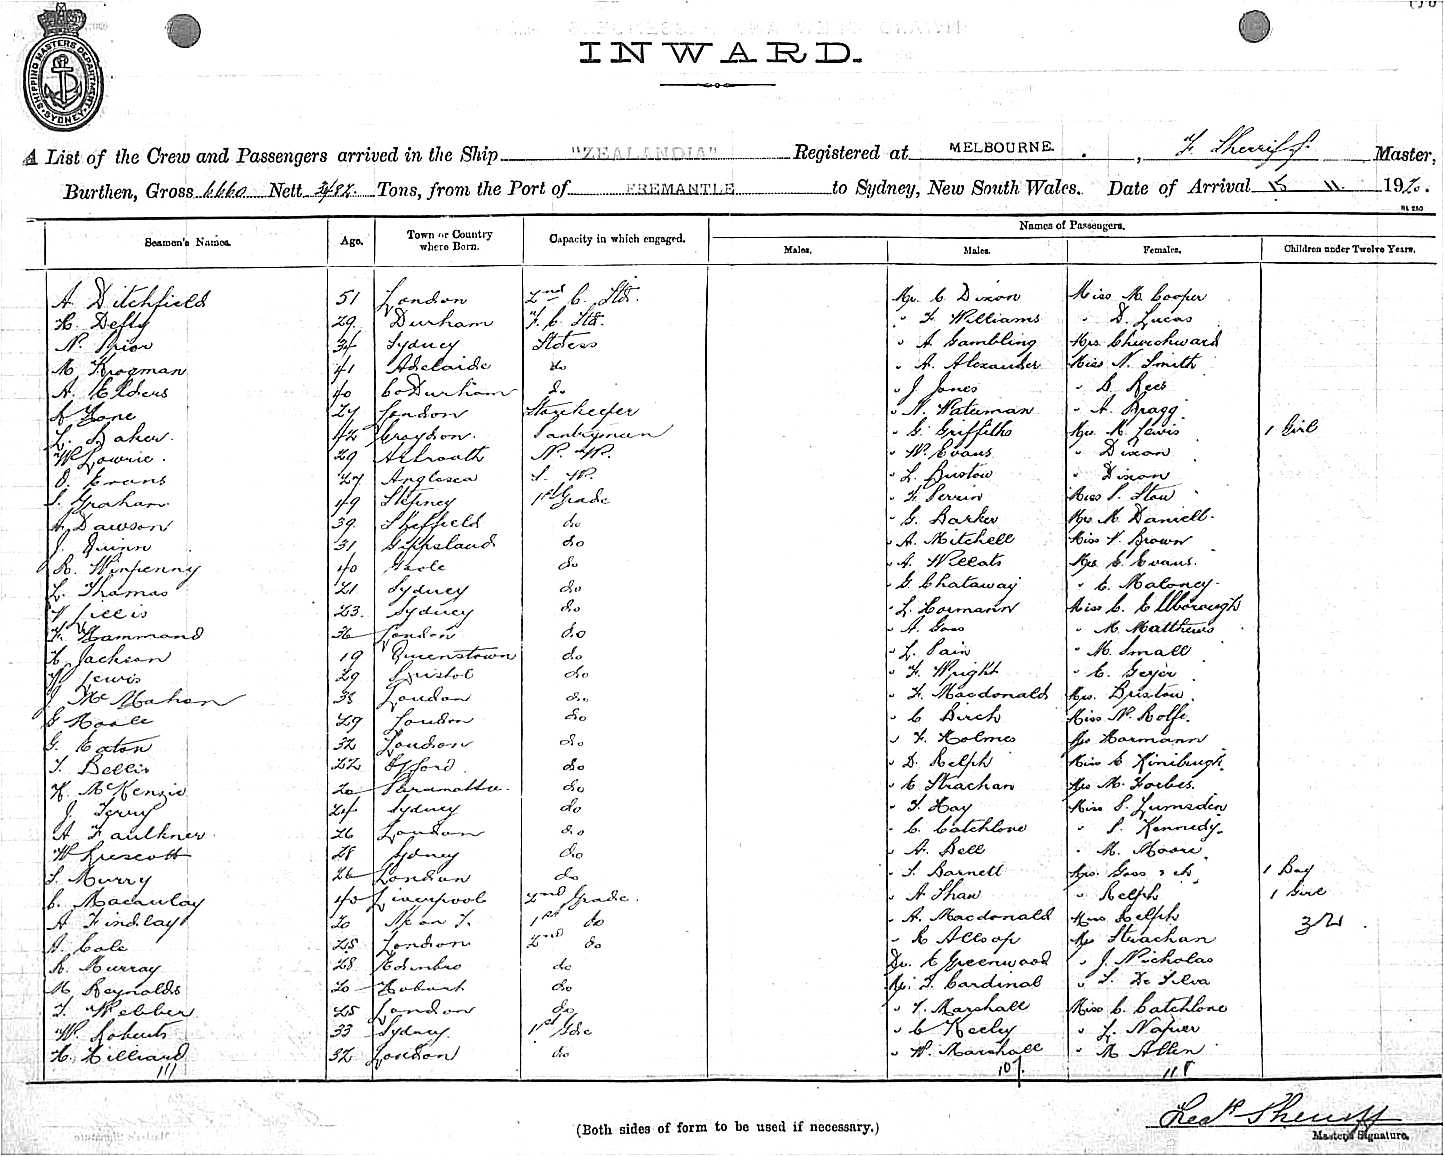 SHIPPING MASTERS DEPARTMENT SYDNEY
INWARD.
A List of the Crew and Passengers arrived in the Ship "ZEALANDIA" Registered at MELBOURNE. , F. Sherriff. Master,
Burthen, Gross 6660 Nett Tons, from the Port of FREMANTLE to Sydney, New South Wales. Date of Arrival 15 11 1920.
Seamen's Names. Age. Town or Country where Born. Capacity in which engaged. Names of Passengers.
Males. Males. Females. Children under Twelve Years.
A. Ditchfield 51 London 2nd C. Std. Mr. C Dixon Miss M. Cooper
H. Defty 29 Durham F. C. Std. " F Williams " D. Lucas
N. Prior 34 Sydney Stdess " A Gambling Mrs. Churchward
M Krogman 41 Adelaide do " A. Alexander Miss N. Smith
A. Elders 40 Co Durham do " J Jones " Rees
Lane 27 London Storekeeper " N. Waterman " A. Bragg
L. Baker. 42 Croydon. Pantryman " G. Griffiths Mrs. Lewis 1 Girl
W Lowrie. 29 Arbroath N. W. " W. Evans " Dixon
O. Evans 27 Anglesea S. W. " L. Buston " Dixon
S. Graham 49 Stepney 1st Grade " F Perrin Miss S. Stow
A. Dawson 39. Sheffield do " G. Barker Mrs M. Daniell.
J. Quinn 31 Gippsland do " A. Mitchell Miss V. Brown
R. Winpenny 40 Poole do " A. Willats Mrs. E. Evans.
L. Thomas 21 Sydney do " G. Chataway " C. Maloney.
V Lillis 23. Sydney do " L. Hormann Miss C. Ellborough
F. Hammond 36 London do " A. Goss " M. Matthews
H. Jackson 19 Queenstown do " L. Pain " M. Small
Lewis 29 Bristol do " F. Wright " E. Geyer
J McMahon 38 London do " F. Macdonald Mrs. Bristow
G Hoole 29 London do " C Birch Miss N. Rolfe.
G. Eaton 32 London do " F. Holmes Mrs Hormann
T. Bellis 22 do " D. Relph Miss C
H. McKenzie 20 Parramatta. do " C Strachan Mrs M. Forbes.
J. Terry 24 Sydney do " T. Hay Miss S. Lumsden
A Faulkner. 26 London do " C. Catchlove " S. Kennedy.
W Prescott 28 Sydney do " A. Bell " M. Moore.
S. Murry 26 London do " S. Barnett Mrs. Goss 1 Boy
C. Macaulay 40 Liverpool 2nd Grade. " A Shaw " Relph 1 Girl
A Findlay 20 1st do " A. Macdonald Miss Relph
A. Cole 25 London 2nd do " R Allsop Mrs Strachan
R. Murray 28 Edinbro do Dr. C Greenwood " J. Nicholas
M. Reynolds 20 Hobart do Mr. T. Cardinal " De Silva
T. Webber 25 London do " T. Marshall Miss C. Catchlove
W. Roberts 33 Sydney. 1st Gde " C Keely " L. Napier
H. Hilliard 32 London do " W. Marshall " M Allen
111 107.
(Both sides of form to be used if necessary.)
Fredk Sherriff
Master's Signature.